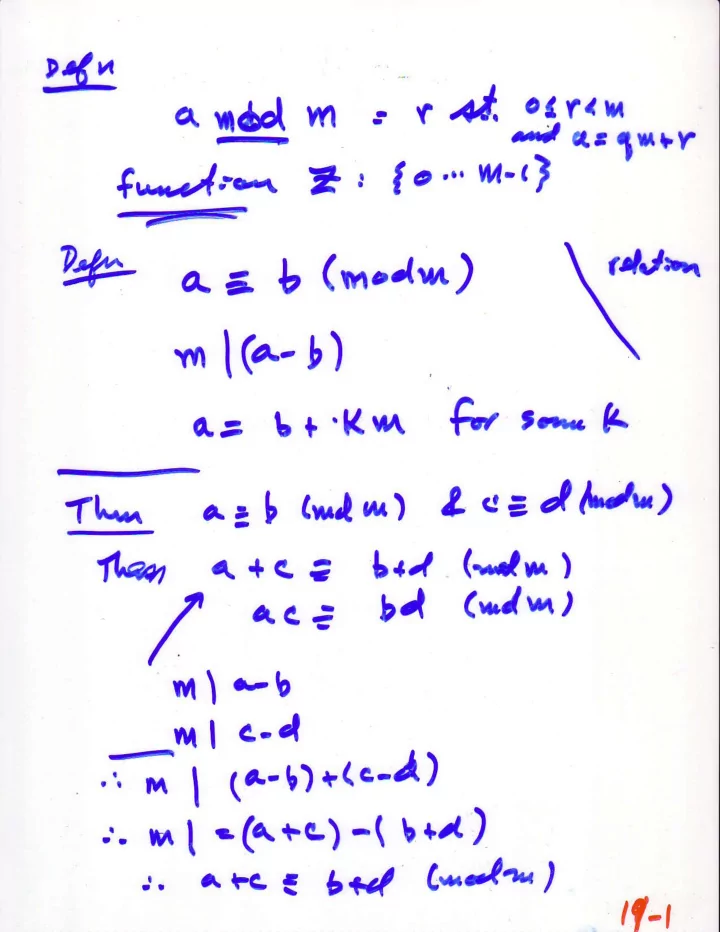 Defn
a mod m = r st. 0 ≤ r < m
and a = qm+r
function Z : {0 ... m-1}
Defn a ≡ b (mod m) relation
m | (a-b)
a = b + ·Km for some K
Thm a ≡ b (md m) & c ≡ d (mod m)
Then a + c ≡ b+d (mod m)
ac ≡ bd (md m)
m | a-b
m | c-d
∴ m | (a-b)+(c-d)
∴ m | =(a+c)-(b+d)
∴ a+c ≡ b+d (mod m)
19-1